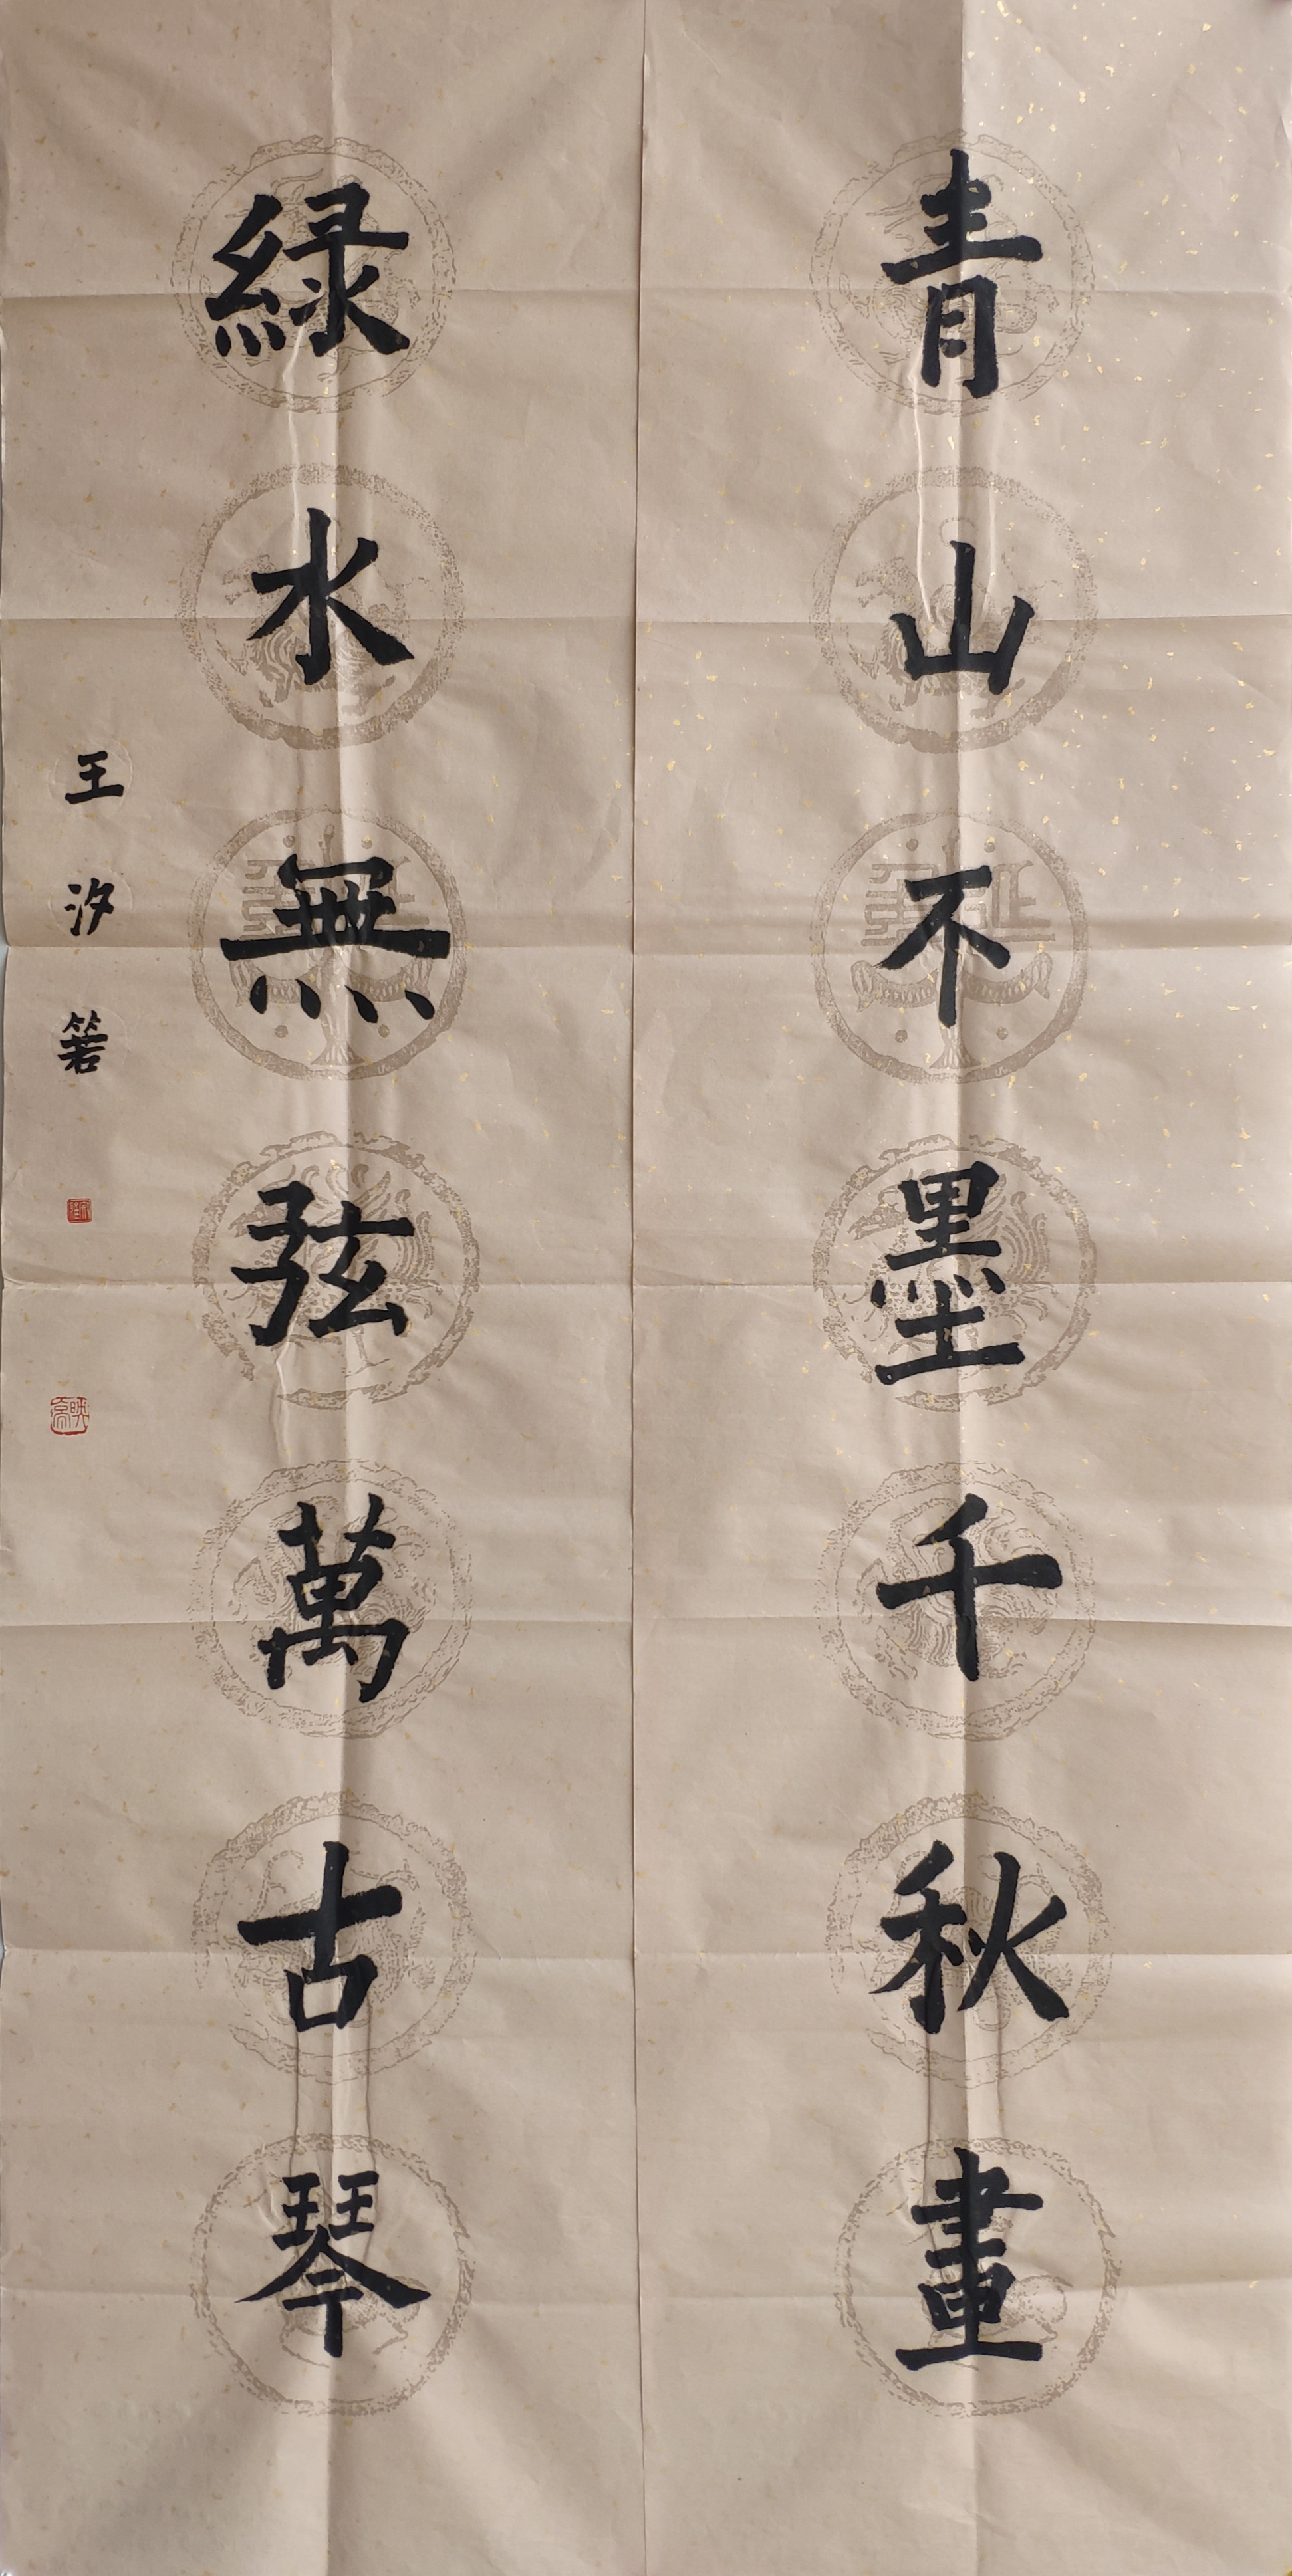 青山不墨千秋畫
緑水無弦萬古琴
王汐箬